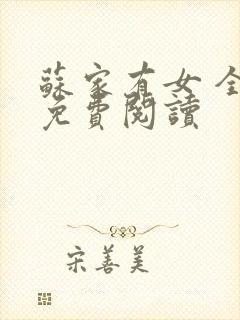 蘇家有女 全
免費閱讀
宋善美